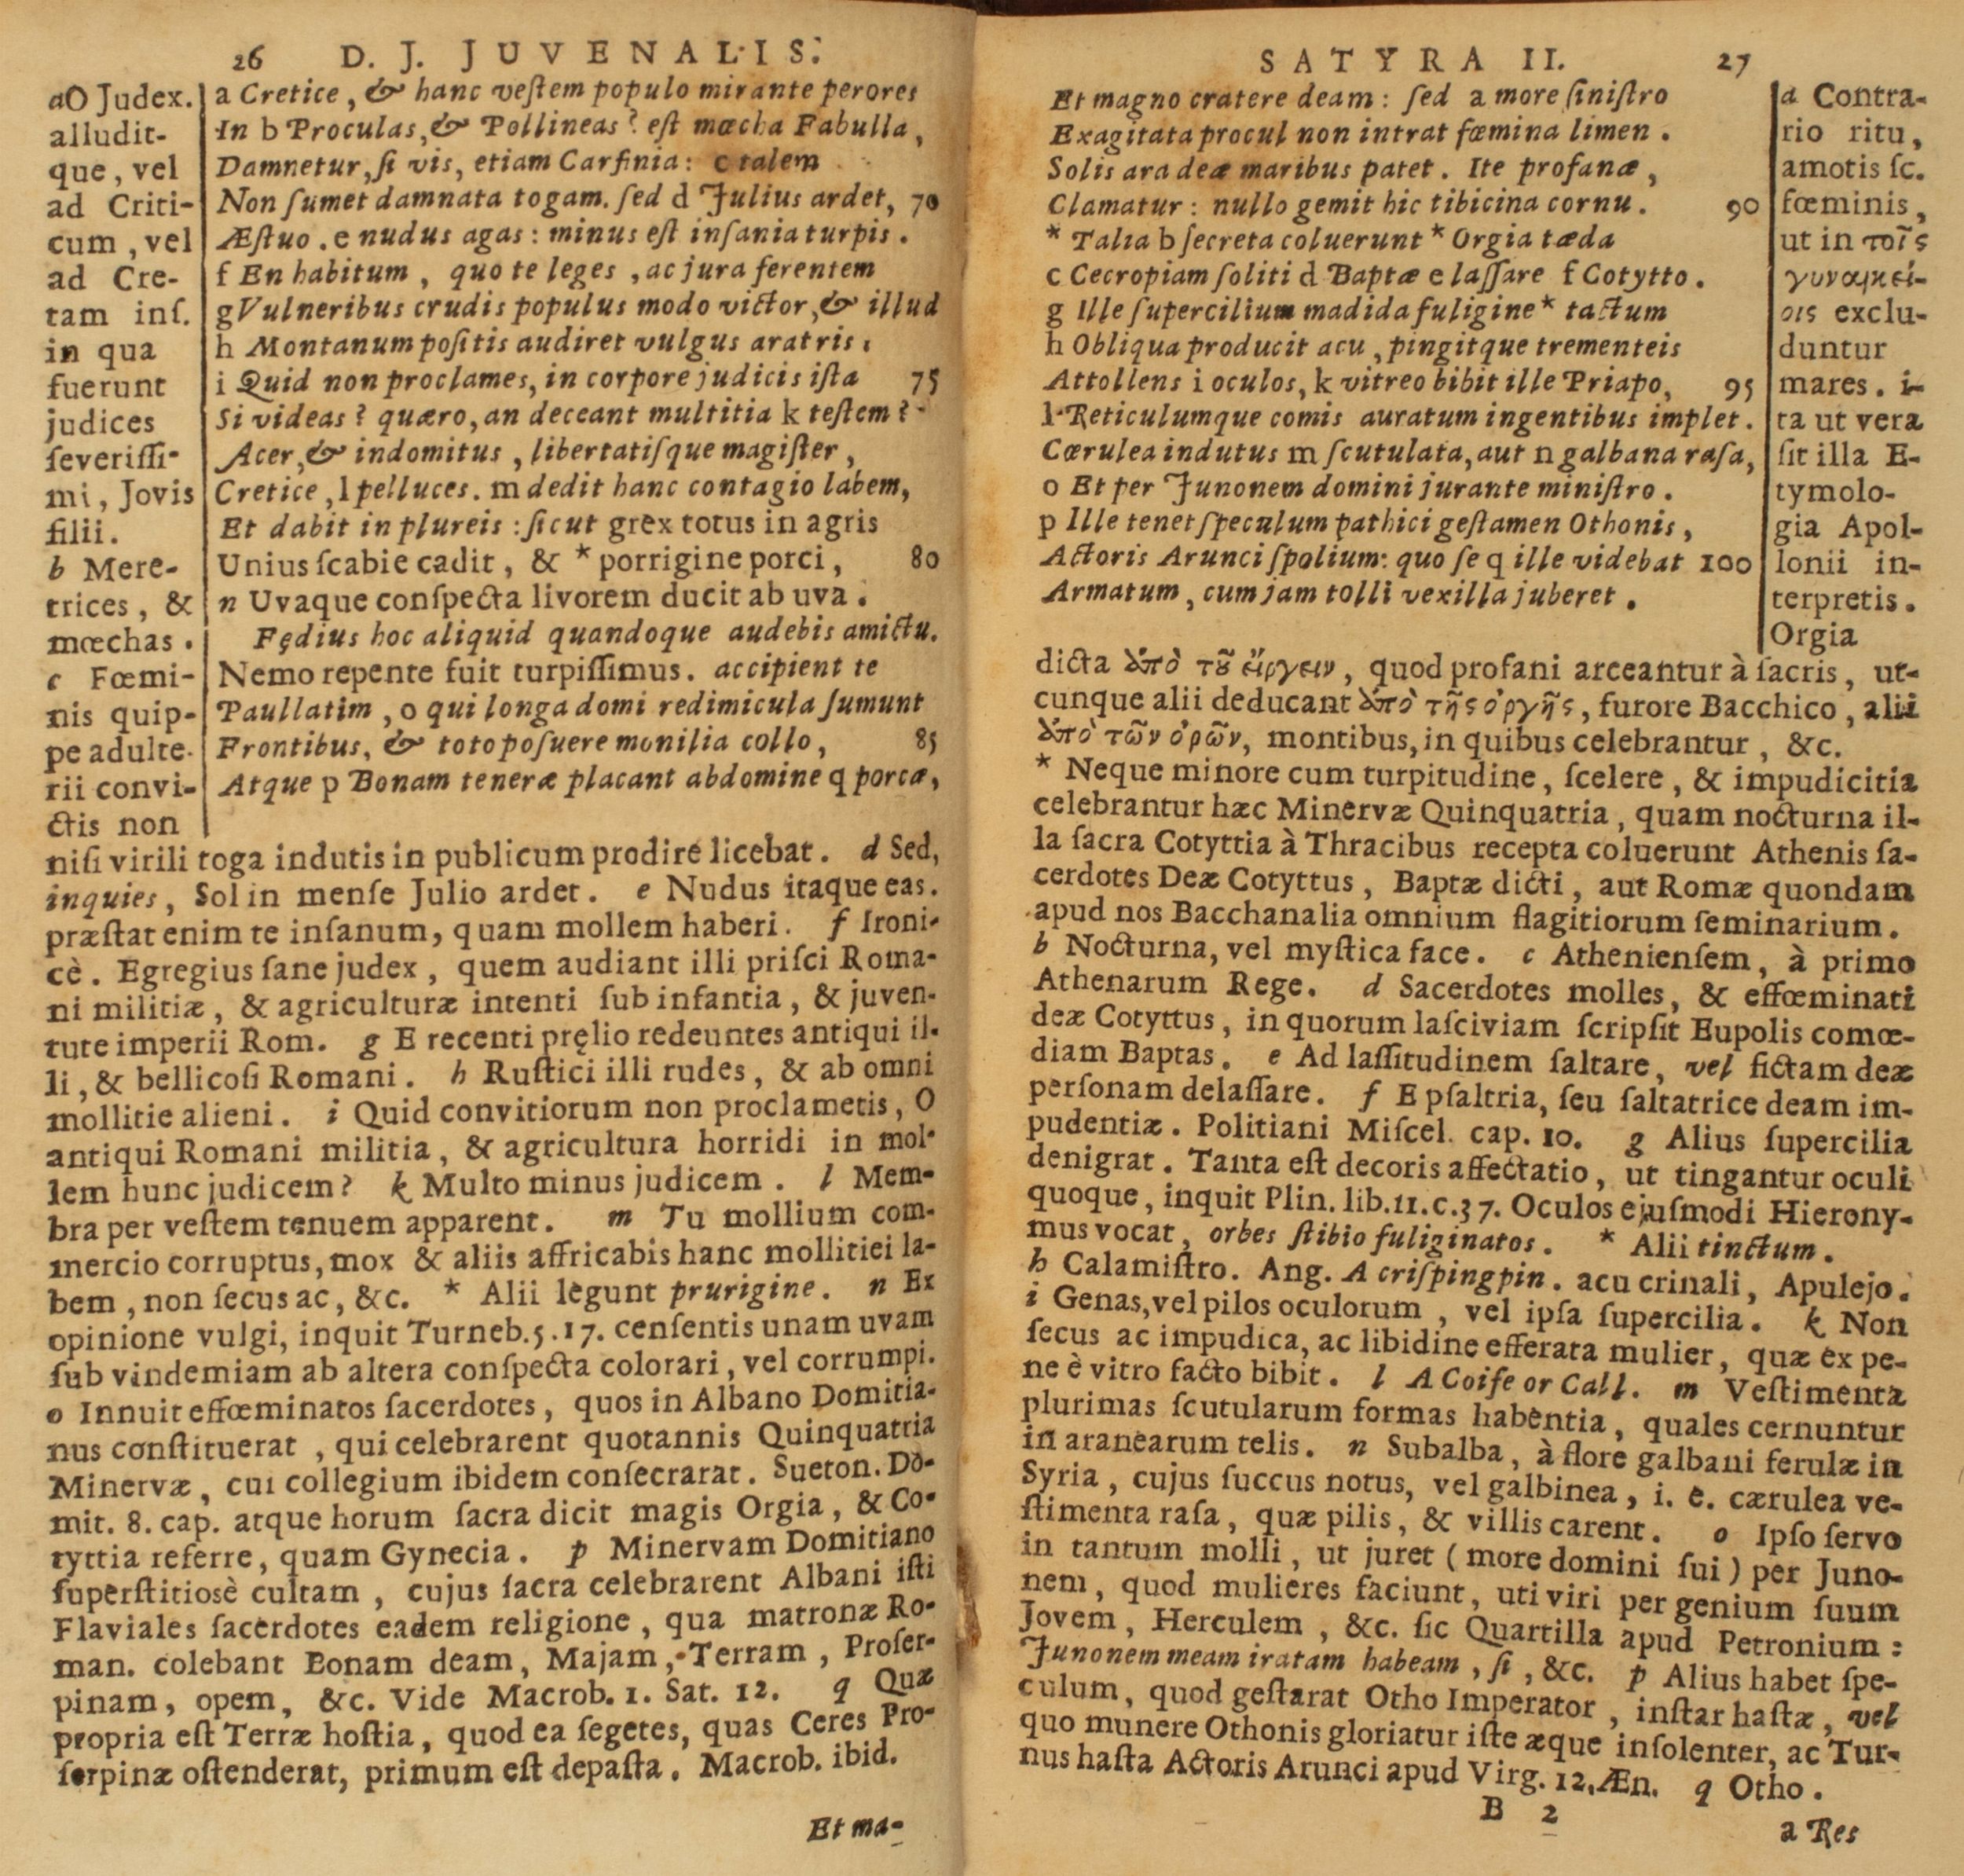 26 D. J. JUVENALIS.
a Cretice, & hanc veſtem populo mirante perores
In b Proculas, & Pollineas? eſt mœcha Fabulla,
Damnetur, ſi vis, etiam Carfinia: c talem
Non ſumet damnata togam. ſed d Julius ardet, 70
Æſtuo. e nudus agas: minus eſt inſania turpis.
f En habitum, quo te leges, ac jura ferentem
g Vulneribus crudis populus modo victor, & illud
h Montanum poſitis audiret vulgus aratris.
i Quid non proclames, in corpore judicis iſta 75
Si videas? quæro, an deceant multitia k teſtem?
Acer, & indomitus, libertatiſque magiſter,
Cretice, l pelluces. m dedit hanc contagio labem,
Et dabit in plureis: ſicut grex totus in agris
Unius ſcabie cadit, & * porrigine porci, 80
n Uvaque conſpecta livorem ducit ab uva.
Fędius hoc aliquid quandoque audebis amictu.
Nemo repente fuit turpiſſimus. accipient te
Paullatim, o qui longa domi redimicula ſumunt
Frontibus, & toto poſuere monilia collo, 85
Atque p Bonam teneræ placant abdomine q porcæ,
aO Judex.
alludit-
que, vel
ad Criti-
cum, vel
ad Cre-
tam inſ.
in qua
fuerunt
judices
ſeveriſſi-
mi, Jovis
filii.
b Mere-
trices, &
mœchas.
c Fœmi-
nis quip-
pe adulte-
rii convi-
ctis non
niſi virili toga indutis in publicum prodire licebat. d Sed,
inquies, Sol in menſe Julio ardet. e Nudus itaque eas.
præſtat enim te inſanum, quam mollem haberi. f Ironi-
cè. Egregius ſane judex, quem audiant illi priſci Roma-
ni militiæ, & agriculturæ intenti ſub infantia, & juven-
tute imperii Rom. g E recenti pręlio redeuntes antiqui il-
li, & bellicoſi Romani. h Ruſtici illi rudes, & ab omni
mollitie alieni. i Quid convitiorum non proclametis, O
antiqui Romani militia, & agricultura horridi in mol-
lem hunc judicem? k Multo minus judicem. l Mem-
bra per veſtem tenuem apparent. m Tu mollium com-
mercio corruptus, mox & aliis affricabis hanc mollitiei la-
bem, non ſecus ac, &c. * Alii legunt prurigine. n Ex
opinione vulgi, inquit Turneb. 5. 17. cenſentis unam uvam
ſub vindemiam ab altera conſpecta colorari, vel corrumpi.
o Innuit effœminatos ſacerdotes, quos in Albano Domitia-
nus conſtituerat, qui celebrarent quotannis Quinquatria
Minervæ, cui collegium ibidem conſecrarat. Sueton. Do-
mit. 8. cap. atque horum ſacra dicit magis Orgia, & Co-
tyttia referre, quam Gynecia. p Minervam Domitiano
ſuperſtitiosè cultam, cujus ſacra celebrarent Albani iſti
Flaviales ſacerdotes eadem religione, qua matronæ Ro-
man. colebant Bonam deam, Majam, Terram, Proſer-
pinam, opem, &c. Vide Macrob. 1. Sat. 12. q Quæ
propria eſt Terræ hoſtia, quod ea ſegetes, quas Ceres Pro-
ſerpinæ oſtenderat, primum eſt depaſta. Macrob. ibid.
Et ma-
SATYRA II. 27
Et magno cratere deam: ſed a more ſiniſtro
Exagitata procul non intrat fœmina limen.
Solis ara deæ maribus patet. Ite profanæ,
Clamatur: nullo gemit hic tibicina cornu. 90
* Talia b ſecreta coluerunt * Orgia tæda
c Cecropiam ſoliti d Baptæ e laſſare f Cotytto.
g Ille ſupercilium madida fuligine * tactum
h Obliqua producit acu, pingitque trementeis
Attollens i oculos, k vitreo bibit ille Priapo, 95
l Reticulumque comis auratum ingentibus implet.
Cærulea indutus m ſcutulata, aut n galbana raſa,
o Et per Junonem domini jurante miniſtro.
p Ille tenet ſpeculum pathici geſtamen Othonis,
Actoris Arunci ſpolium: quo ſe q ille videbat 100
Armatum, cum jam tolli vexilla juberet.
a Contra-
rio ritu,
amotis ſc.
fœminis,
ut in τοῖς
γυναικεί-
οις exclu-
duntur
mares. i-
ta ut vera
ſit illa E-
tymolo-
gia Apol-
lonii in-
terpretis.
Orgia
dicta ἀπὸ τοῦ εἴργειν, quod profani arceantur à ſacris, ut-
cunque alii deducant ἀπὸ τῆς ὀργῆς, furore Bacchico, alii
ἀπὸ τῶν ὀρῶν, montibus, in quibus celebrantur, &c.
* Neque minore cum turpitudine, ſcelere, & impudicitia
celebrantur hæc Minervæ Quinquatria, quam nocturna il-
la ſacra Cotyttia à Thracibus recepta coluerunt Athenis ſa-
cerdotes Deæ Cotyttus, Baptæ dicti, aut Romæ quondam
apud nos Bacchanalia omnium flagitiorum ſeminarium.
b Nocturna, vel myſtica face. c Athenienſem, à primo
Athenarum Rege. d Sacerdotes molles, & effœminati
deæ Cotyttus, in quorum laſciviam ſcripſit Eupolis comœ-
diam Baptas. e Ad laſſitudinem ſaltare, vel fictam deæ
perſonam delaſſare. f E pſaltria, ſeu ſaltatrice deam im-
pudentiæ. Politiani Miſcel. cap. 10. g Alius ſupercilia
denigrat. Tanta eſt decoris affectatio, ut tingantur oculi
quoque, inquit Plin. lib. 11. c. 37. Oculos ejuſmodi Hierony-
mus vocat, orbes ſtibio fuliginatos. * Alii tinctum.
h Calamiſtro. Ang. A criſpingpin. acu crinali, Apulejo.
i Genas, vel pilos oculorum, vel ipſa ſupercilia. k Non
ſecus ac impudica, ac libidine efferata mulier, quæ ex pe-
ne è vitro facto bibit. l A Coife or Call. m Veſtimenta
plurimas ſcutularum formas habentia, quales cernuntur
in aranearum telis. n Subalba, à flore galbani ferulæ in
Syria, cujus ſuccus notus, vel galbinea, i. e. cærulea ve-
ſtimenta raſa, quæ pilis, & villis carent. o Ipſo ſervo
in tantum molli, ut juret (more domini ſui) per Juno-
nem, quod mulieres faciunt, uti viri per genium ſuum
Jovem, Herculem, &c. ſic Quartilla apud Petronium:
Junonem meam iratam habeam, ſi, &c. p Alius habet ſpe-
culum, quod geſtarat Otho Imperator, inſtar haſtæ, vel
quo munere Othonis gloriatur iſte æque inſolenter, ac Tur-
nus haſta Actoris Arunci apud Virg. 12. Æn. q Otho.
B 2
a Res